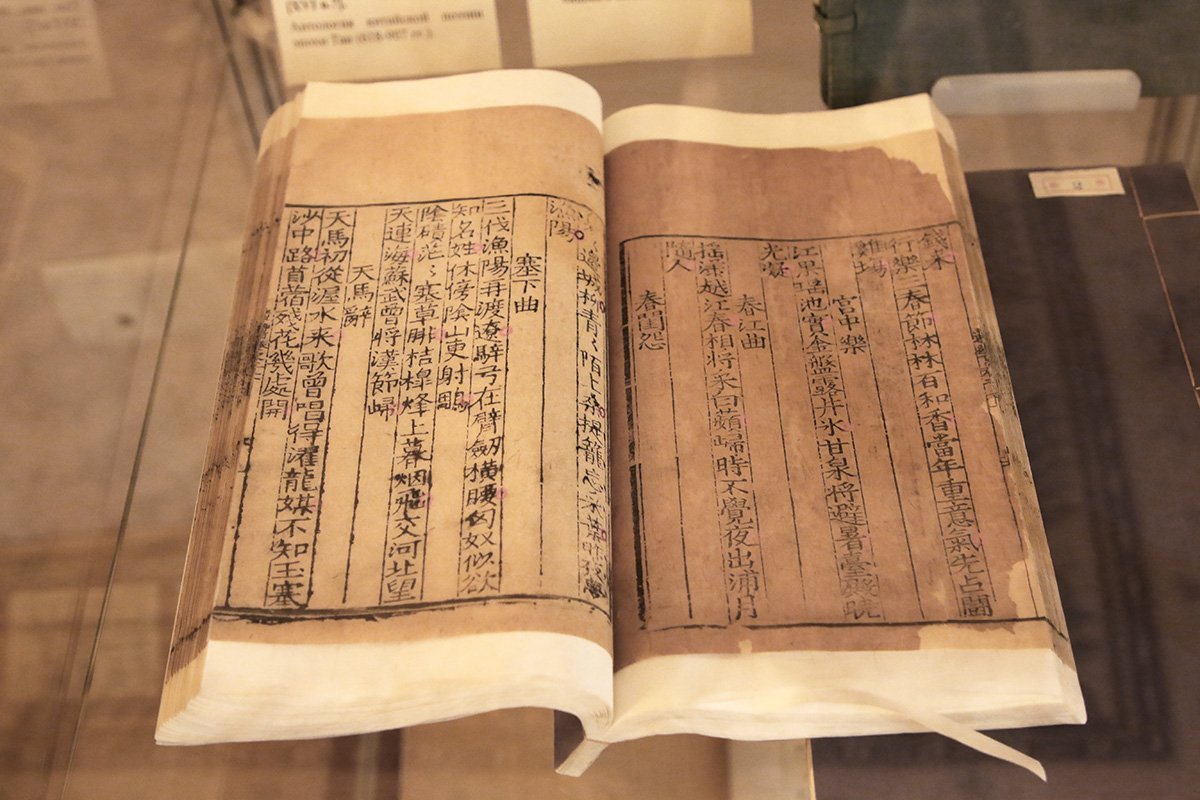 [XVI в.?].
Антология китайской поэзии
эпохи Тан (618-907 гг.).
2
行樂三春節林林百和香當年重意氣先占鬪
雞場
宮中樂
江果瑤池實金盤露井氷甘泉將避暑臺殿曉
光凝
春江曲
搖漾越江春相將采白蘋歸時不覺夜出浦月
隨人
春閨怨
邊城柳青〻陌上桑提籠忘采葉昨夜夢
漁陽
塞下曲
三代漁陽再渡遼騂弓在臂劒橫腰匈奴似欲
知名姓休傍陰山更射鵰
陰磧茫〻塞草腓桔槹烽上暮烟飛交河北望
天連海蘇武曾將漢節歸
天馬辭
天馬初從渥水來歌曾唱得濯龍媒不知玉塞
沙中路苜蓿殘花幾處開